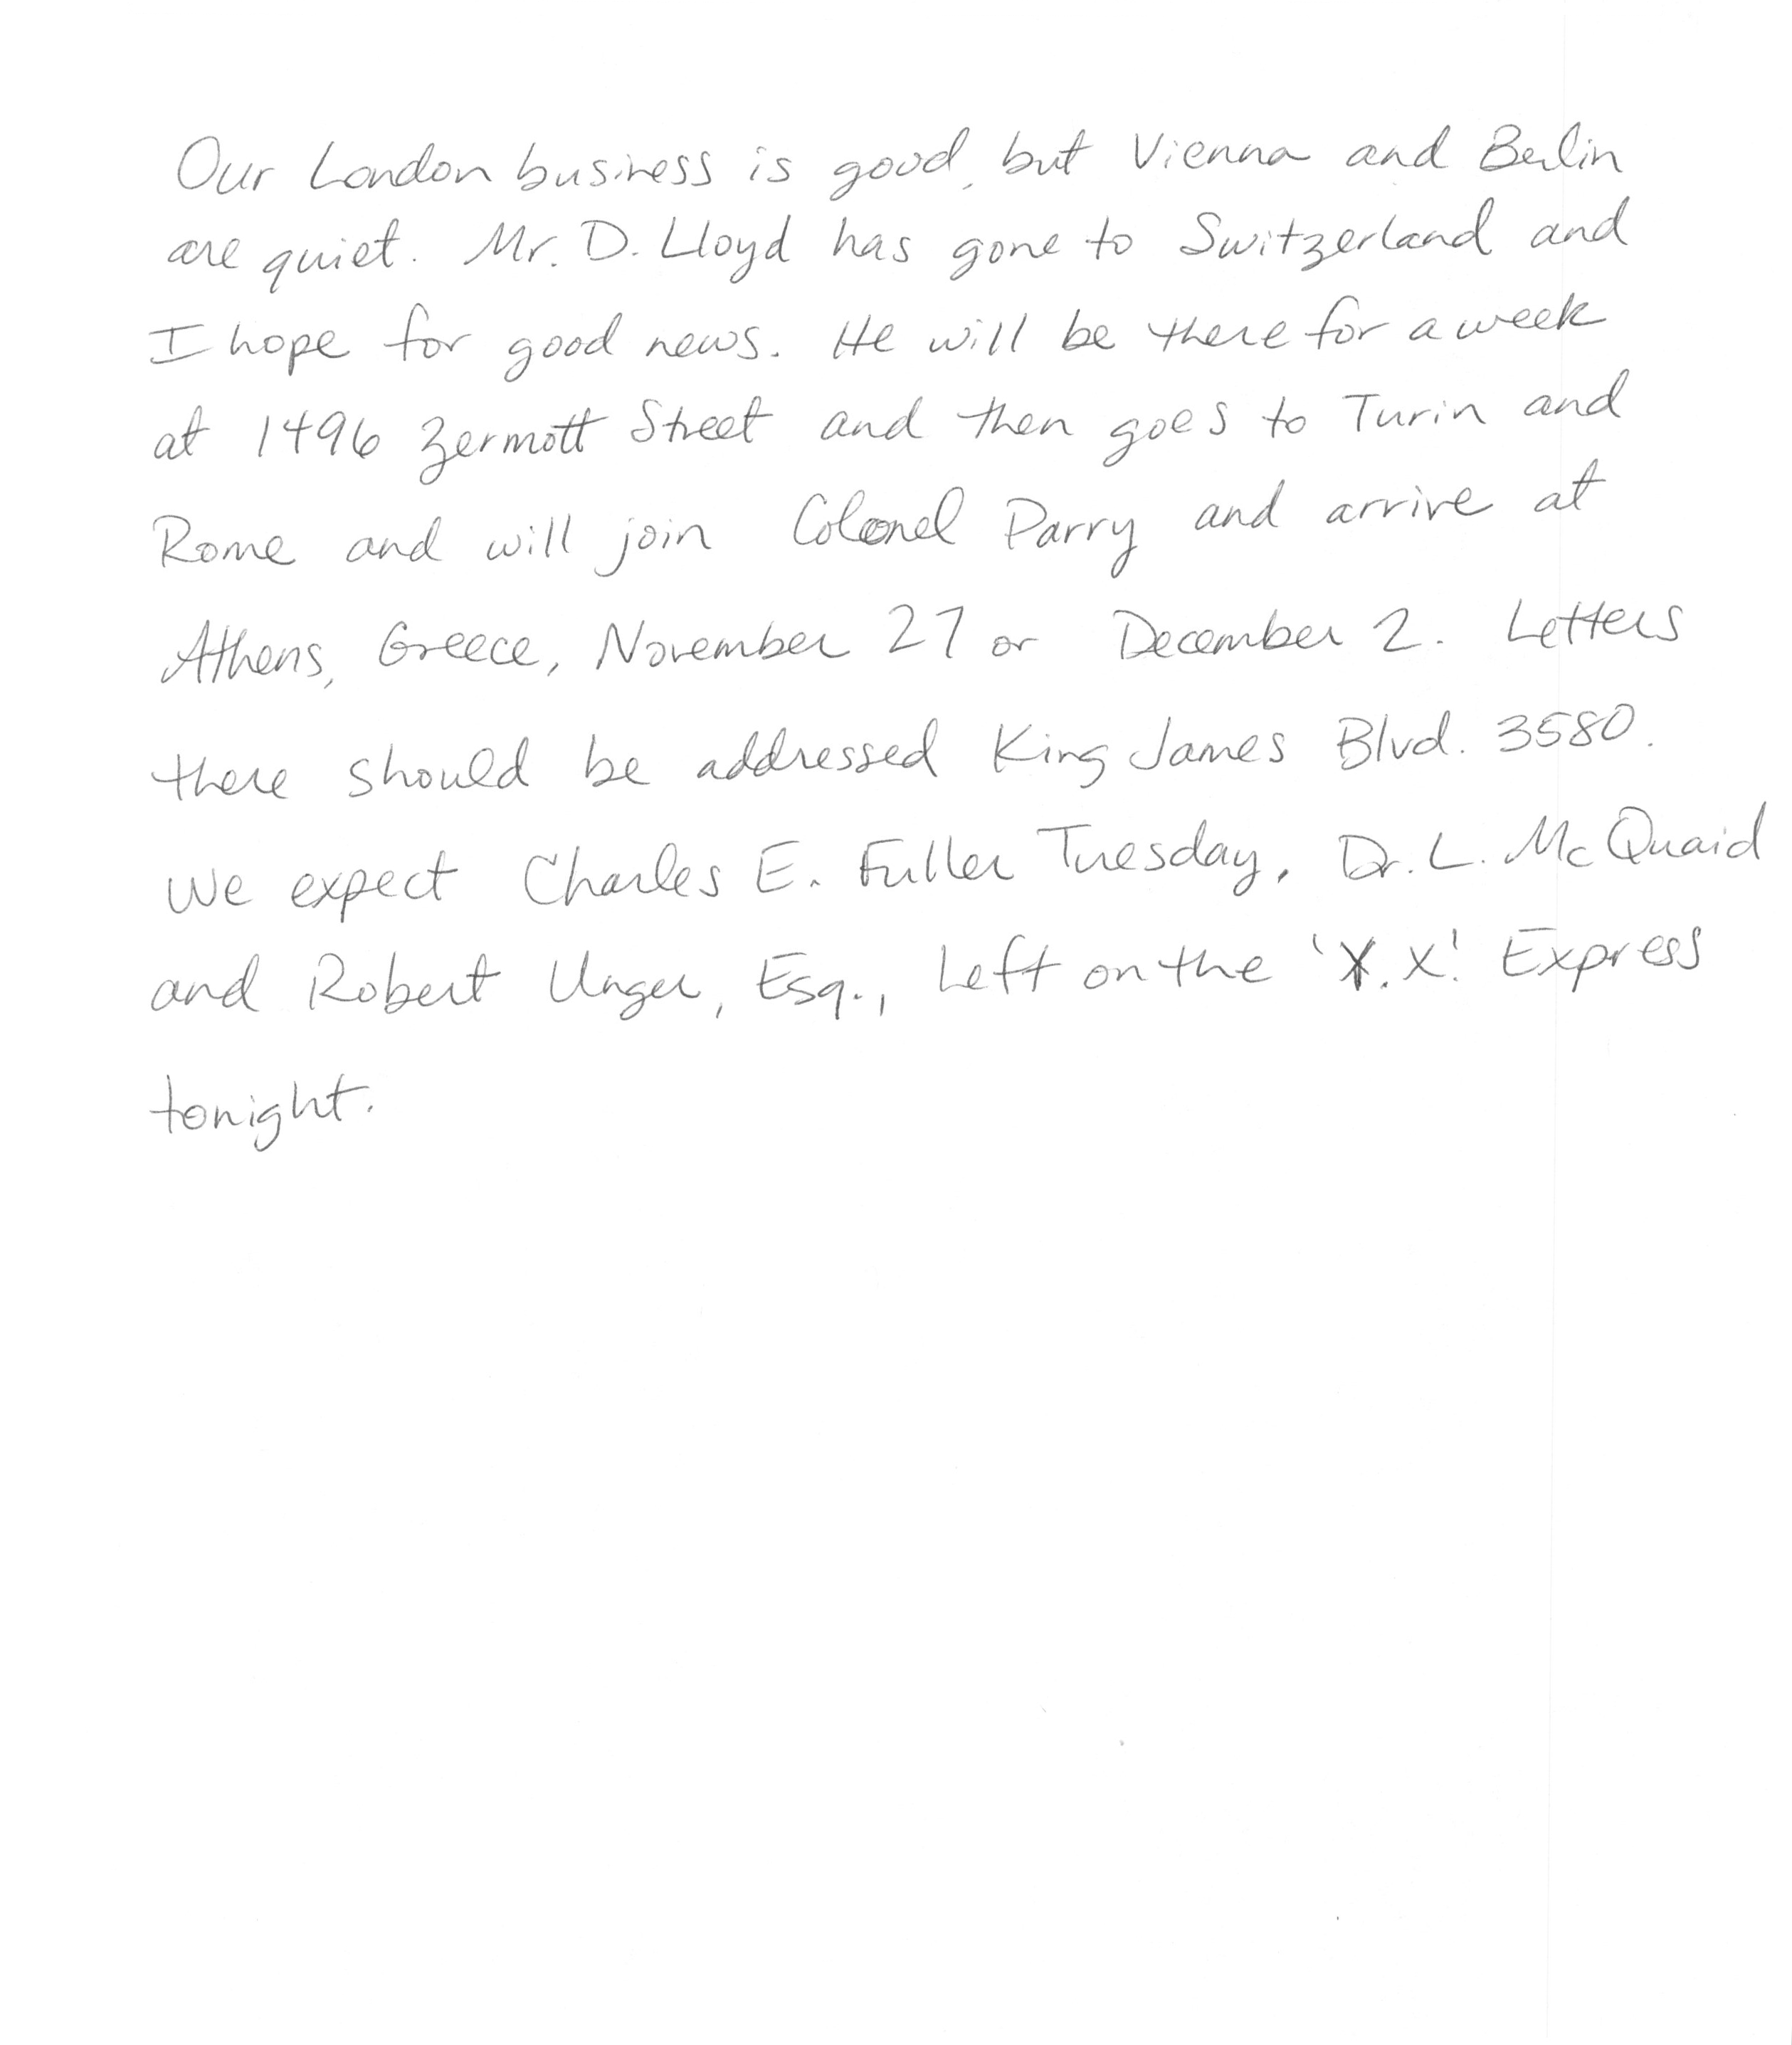 Our London business is good, but Vienna and Berlin
are quiet. Mr. D. Lloyd has gone to Switzerland and
I hope for good news. He will be there for a week
at 1496 Zermott Street and then goes to Turin and
Rome and will join Colonel Parry and arrive at
Athens, Greece, November 27 or December 2. Letters
there should be addressed King James Blvd. 3580.
We expect Charles E. Fuller Tuesday. Dr. L. McQuaid
and Robert Unger, Esq., Left on the 'X.X.' Express
tonight.